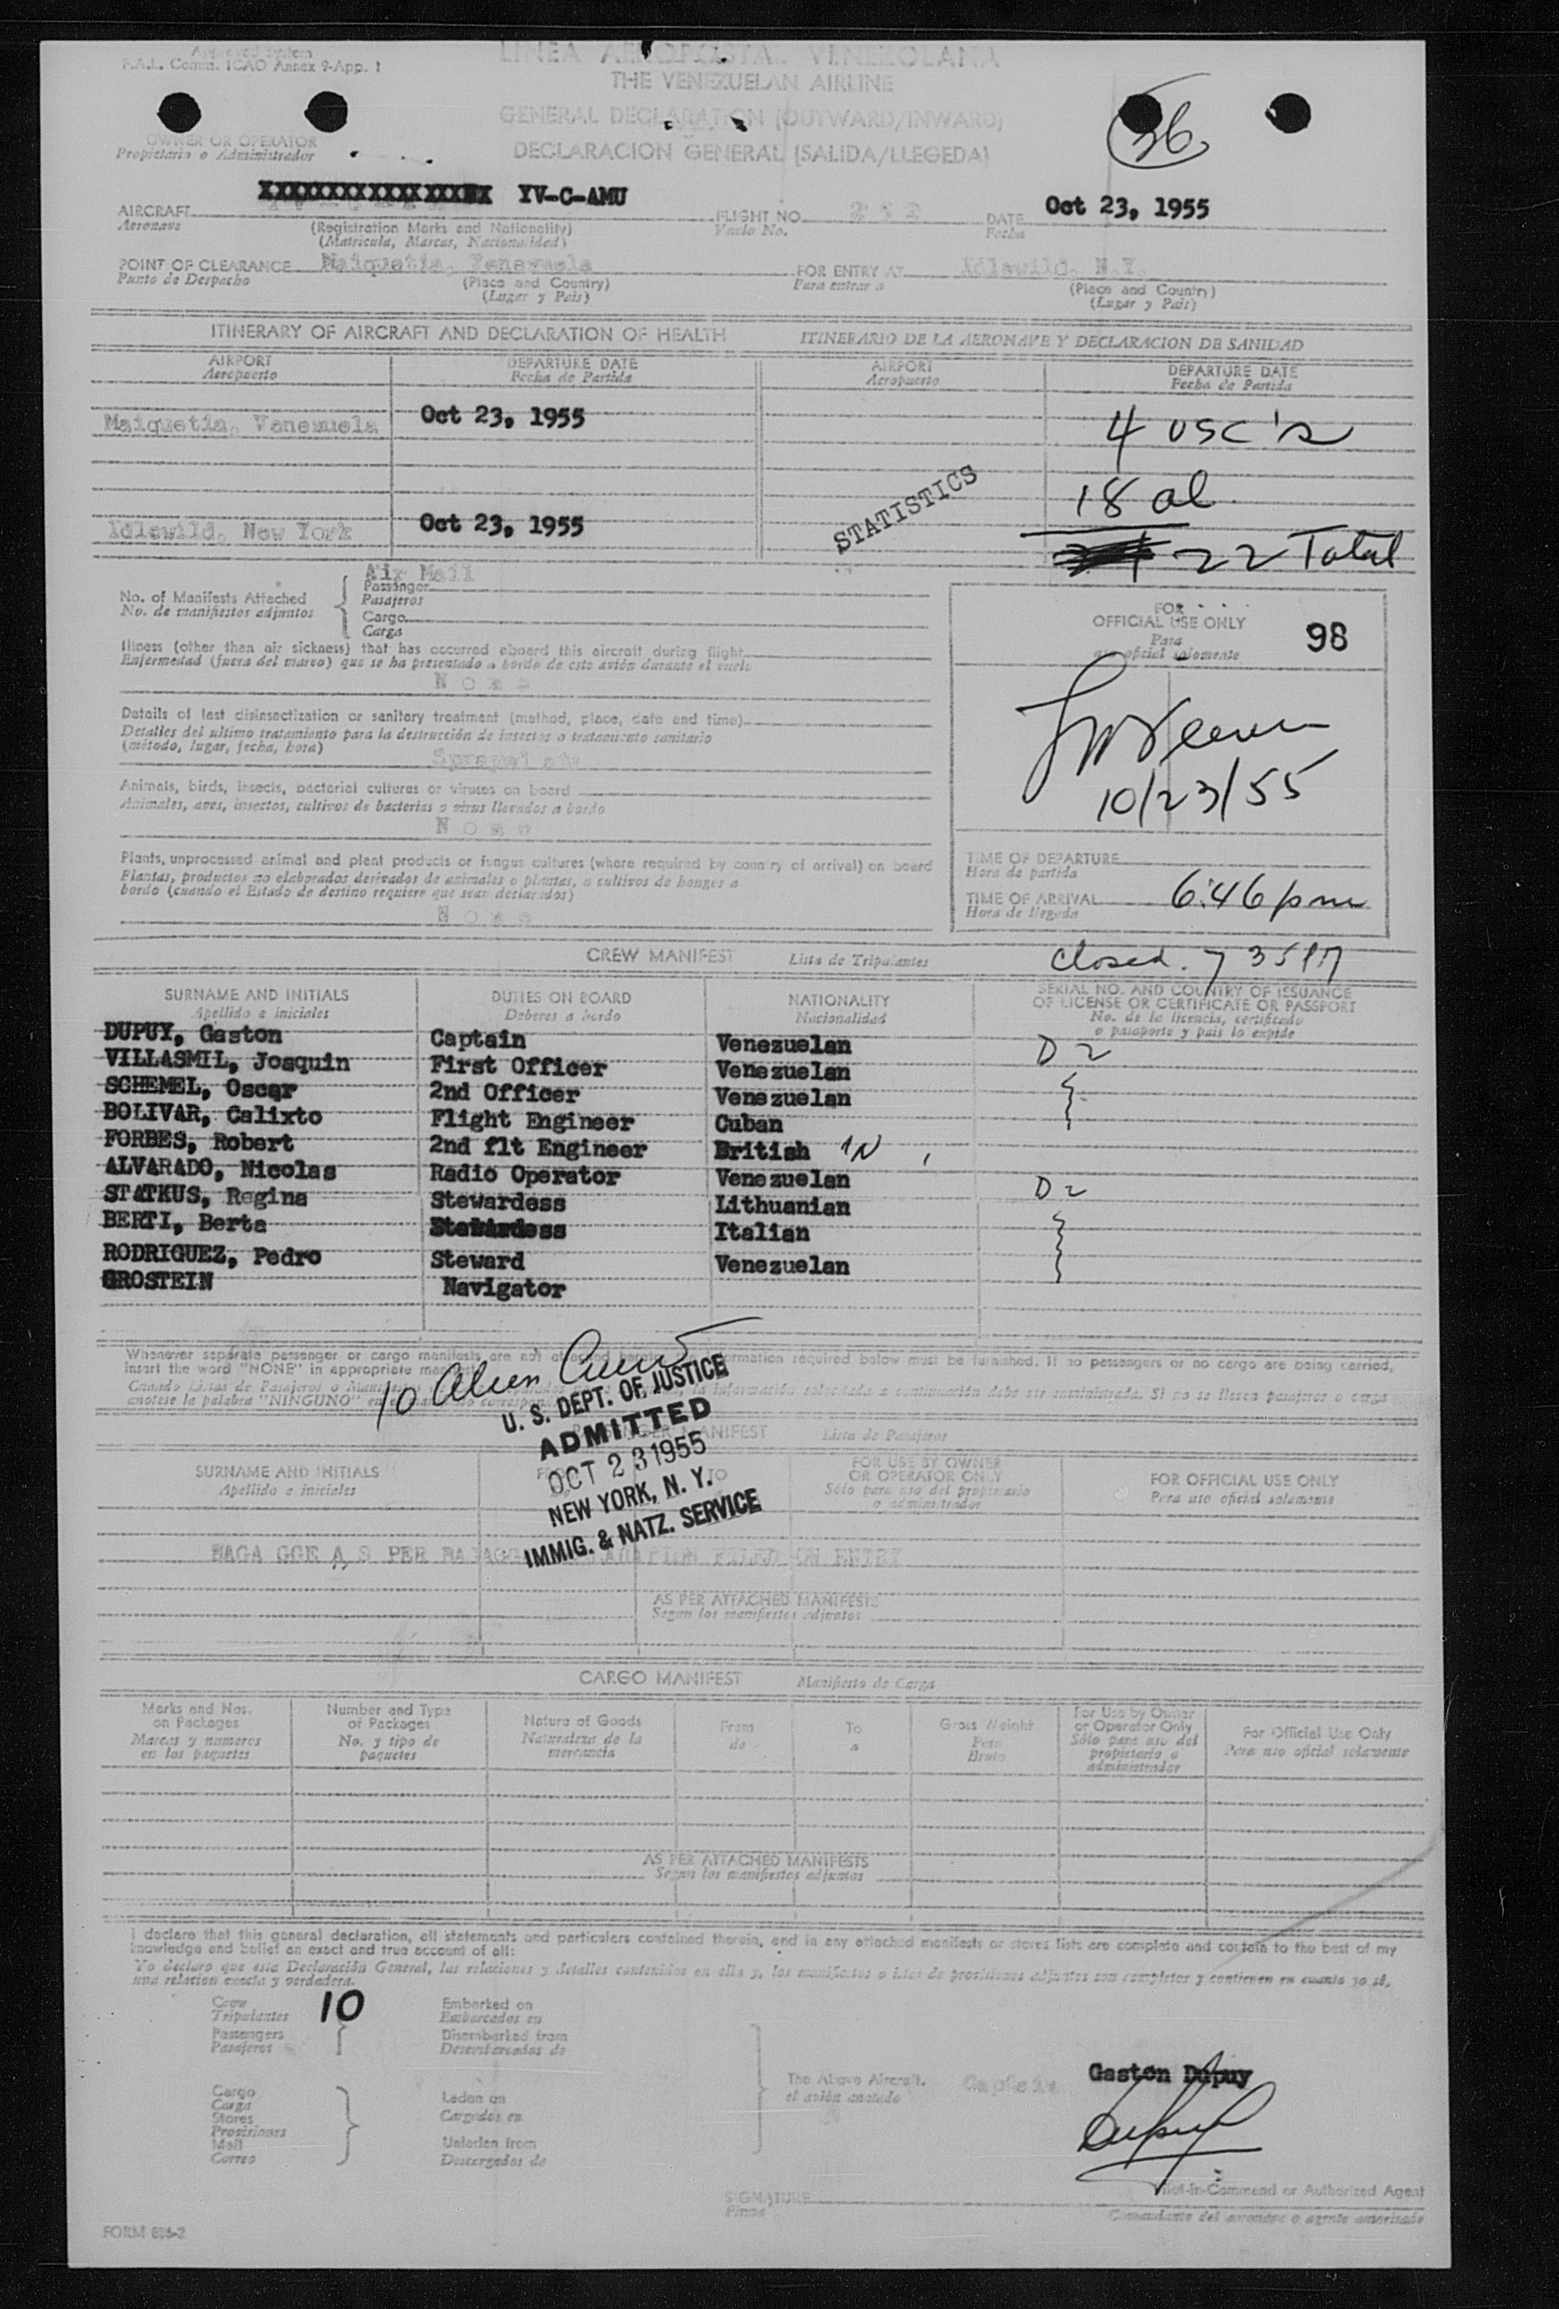 Approved System
F.A.L. Comm. ICAO Annex 9-App. 1
LINEA AEROPOSTAL VENEZOLANA
THE VENEZUELAN AIRLINE
GENERAL DECLARATION (OUTWARD/INWARD)
DECLARACION GENERAL (SALIDA/LLEGEDA)
36
OWNER OR OPERATOR
Propietario o Administrador
YV-C-AMU
AIRCRAFT FLIGHT NO. 252 DATE Oct 23, 1955
Aeronave (Registration Marks and Nationality) Vuelo No. Fecha
(Matricula, Marcas, Nacionalidad)
POINT OF CLEARANCE Maiquetia, Venezuela FOR ENTRY AT Idlewild, N.Y.
Punto de Despacho (Place and Country) Para entrar a (Place and Country)
(Lugar y Pais) (Lugar y Pais)
ITINERARY OF AIRCRAFT AND DECLARATION OF HEALTH ITINERARIO DE LA AERONAVE Y DECLARACION DE SANIDAD
AIRPORT DEPARTURE DATE AIRPORT DEPARTURE DATE
Aeropuerto Fecha de Partida Aeropuerto Fecha de Partida
Maiquetia, Venezuela Oct 23, 1955 4 USC's
18 al
STATISTICS
Idlewild, New York Oct 23, 1955
22 Total
Air Mail
No. of Manifests Attached Passenger
No. de manifiestos adjuntos Pasajeros
Cargo
Carga
FOR
OFFICIAL USE ONLY 98
Para
uso oficial solamente
Illness (other than air sickness) that has occurred aboard this aircraft during flight
Enfermedad (fuera del mareo) que se ha presentado a bordo de este avión durante el vuelo
None
Details of last disinsectization or sanitary treatment (method, place, date and time)
Detalles del ultimo tratamiento para la destrucción de insectos o tratamiento sanitario
(método, lugar, fecha, hora)
10/23/55
Animals, birds, insects, bacterial cultures or viruses on board
Animales, aves, insectos, cultivos de bacterias o virus llevados a bordo
None
Plants, unprocessed animal and plant products or fungus cultures (where required by country of arrival) on board
Plantas, productos no elaborados derivados de animales o plantas, o cultivos de hongos a
bordo (cuando el Estado de destino requiere que sean declarados)
None
TIME OF DEPARTURE
Hora de partida
TIME OF ARRIVAL 6:46 pm
Hora de llegada
CREW MANIFEST Lista de Tripulantes Closed. 7 35 PM
SURNAME AND INITIALS DUTIES ON BOARD NATIONALITY SERIAL NO. AND COUNTRY OF ISSUANCE
OF LICENSE OR CERTIFICATE OR PASSPORT
Apellido e iniciales Deberes a bordo Nacionalidad No. de la licencia, certificado
o pasaporte y pais lo expide
DUPUY, Gaston Captain Venezuelan D 2
VILLASMIL, Josquin First Officer Venezuelan
SCHEMEL, Oscar 2nd Officer Venezuelan
BOLIVAR, Calixto Flight Engineer Cuban
FORBES, Robert 2nd flt Engineer British IN
ALVARADO, Nicolas Radio Operator Venezuelan D 2
STATKUS, Regina Stewardess Lithuanian
BERTI, Berta Stewardess Italian
RODRIGUEZ, Pedro Steward Venezuelan
GROSTEIN Navigator
Whenever separate passenger or cargo manifests are not information required below must be furnished. If no passengers or no cargo are being carried,
insert the word "NONE" in appropriate
Cuando Listas de Pasajeros o la información solicitada a continuación debe ser suministrada. Si no se llevan pasajeros o carga
anótese la palabra "NINGUNO" en
10 Alien Crew
U. S. DEPT. OF JUSTICE
ADMITTED
OCT 23 1955
NEW YORK, N. Y.
IMMIG. & NATZ. SERVICE
PASSENGER MANIFEST Lista de Pasajeros
SURNAME AND INITIALS FROM TO FOR USE BY OWNER
OR OPERATOR ONLY FOR OFFICIAL USE ONLY
Apellido e iniciales Sólo para uso del propietario
o administrador Para uso oficial solamente
BAGA GGE A S PER BAGAGGE DECLARATION FILED ON ENTRY
AS PER ATTACHED MANIFESTS
Segun los manifiestos adjuntos
CARGO MANIFEST Manifiesto de Carga
Marks and Nos.
on Packages
Marcas y numeros
en los paquetes
Number and Type
of Packages
No. y tipo de
paquetes
Nature of Goods
Naturaleza de la
mercancia
From
de
To
a
Gross Weight
Peso
Bruto
For Use by Owner
or Operator Only
Sólo para uso del
propietario o
administrador
For Official Use Only
Para uso oficial solamente
AS PER ATTACHED MANIFESTS
Segun los manifiestos adjuntos
I declare that this general declaration, all statements and particulars contained therein, and in any attached manifests or stores lists are complete and contain to the best of my
knowledge and belief an exact and true account of all:
Yo declaro que esta Declaración General, las relaciones y detalles contenidos en ella y, los manifiestos o listas de provisiones adjuntos son completos y contienen en cuanto yo sé,
una relacion exacta y verdadera.
Crew 10 Embarked on
Tripulantes Embarcados en
Passengers Disembarked from
Pasajeros Desembarcados de
Cargo
Carga
Stores
Provisiones
Mail
Correo
Laden on
Cargados en
Unladen from
Descargados de
The Above Aircraft.
el avión anotado
Captain Gaston Dupuy
Dupuy
Pilot-in-Command or Authorized Agent
SIGNATURE
Firma
Comandante del aeronave o agente autorizado
FORM 805-2